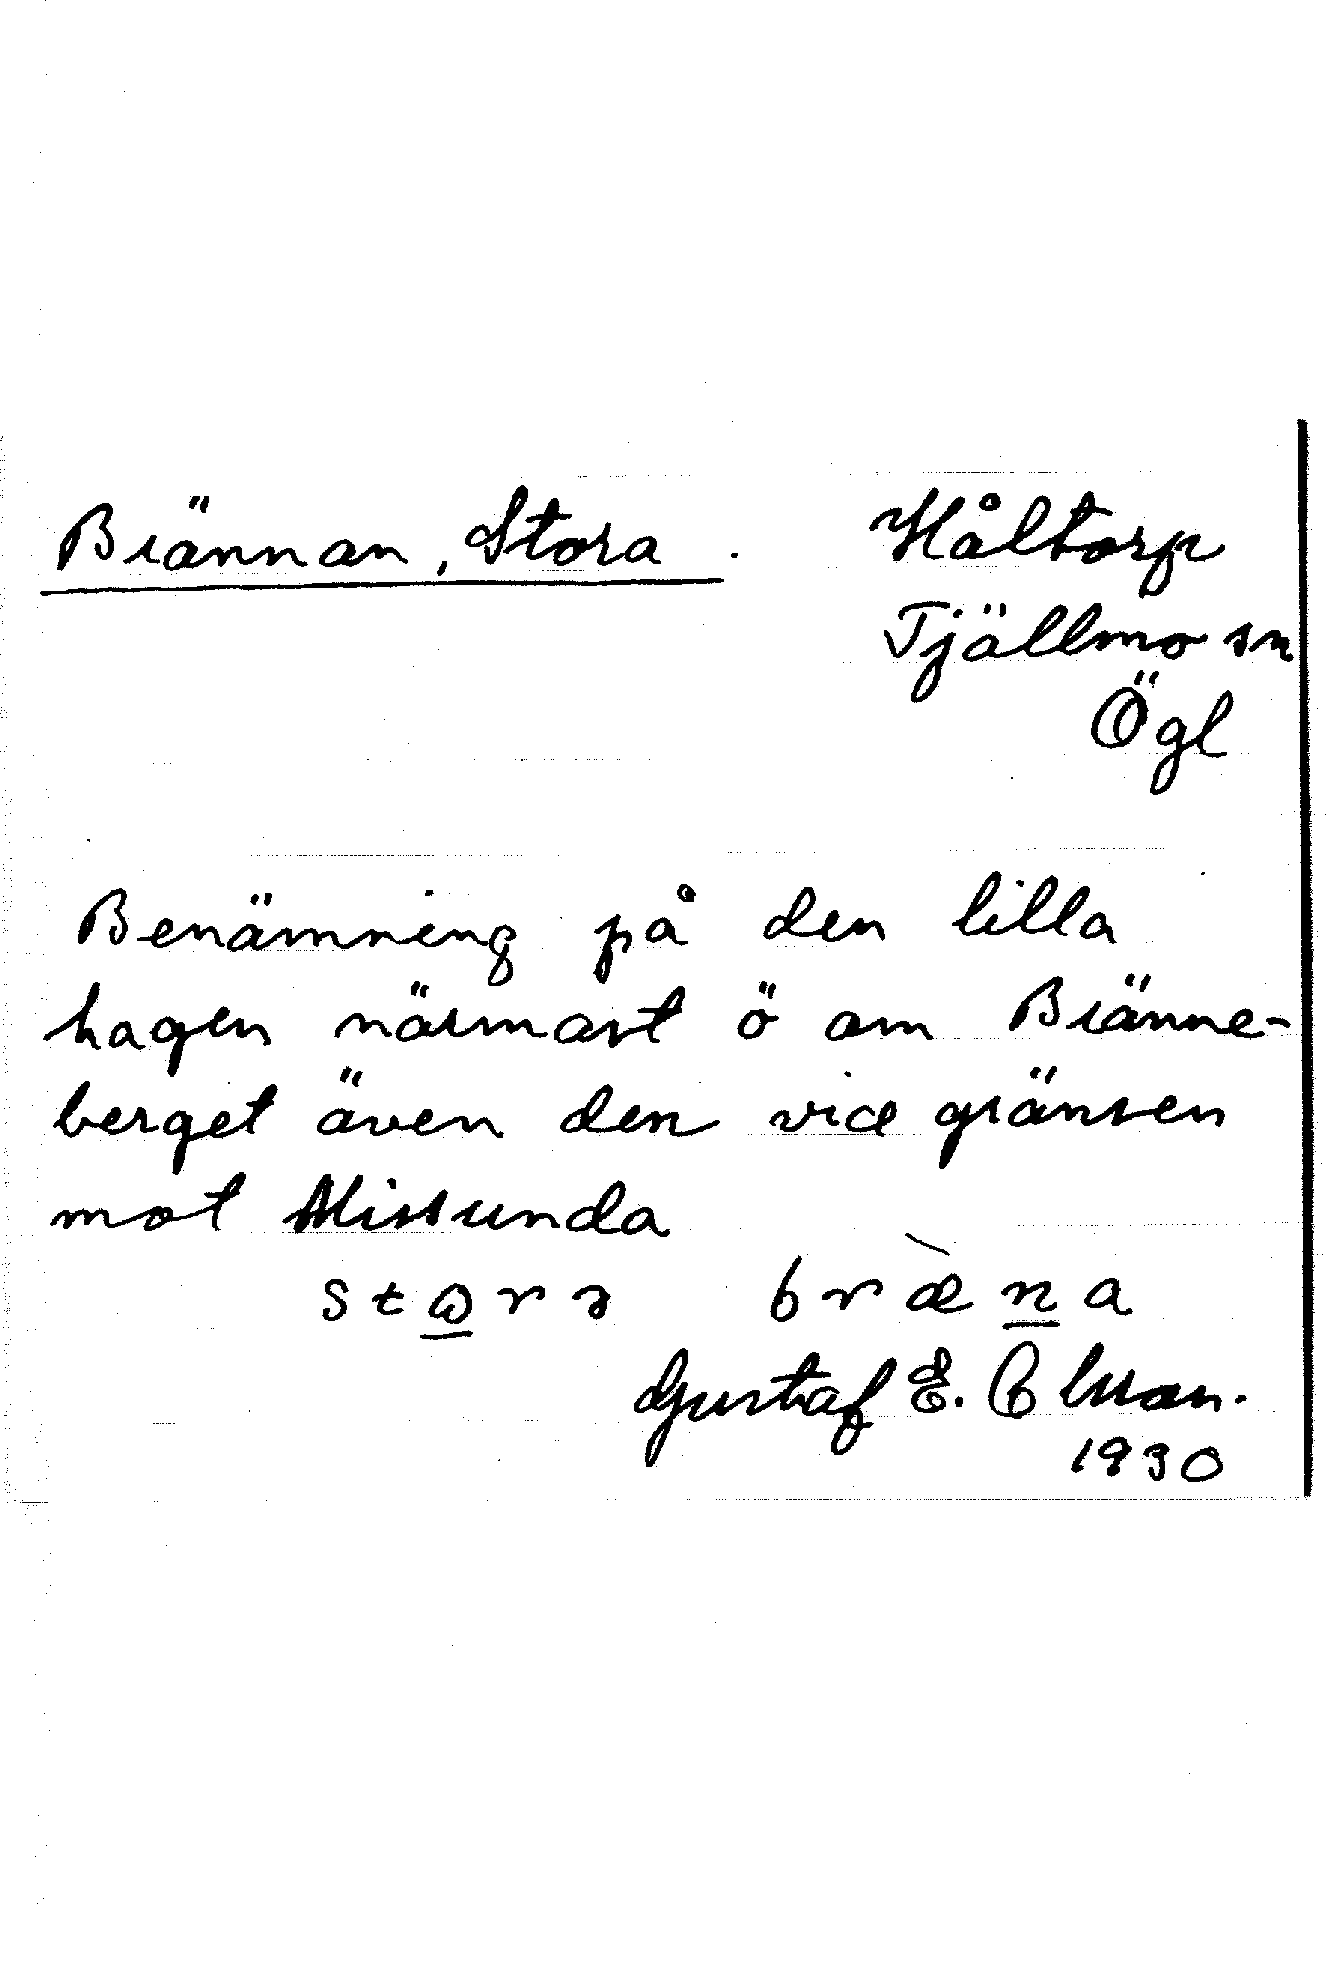 Brännan, Stora. Håltorp
Tjällmo sn
Ögl
Benämning på den lilla
hagen närmast ö om Bränne-
berget även den vid gränsen
mot Missunda
Gustaf E.
1930